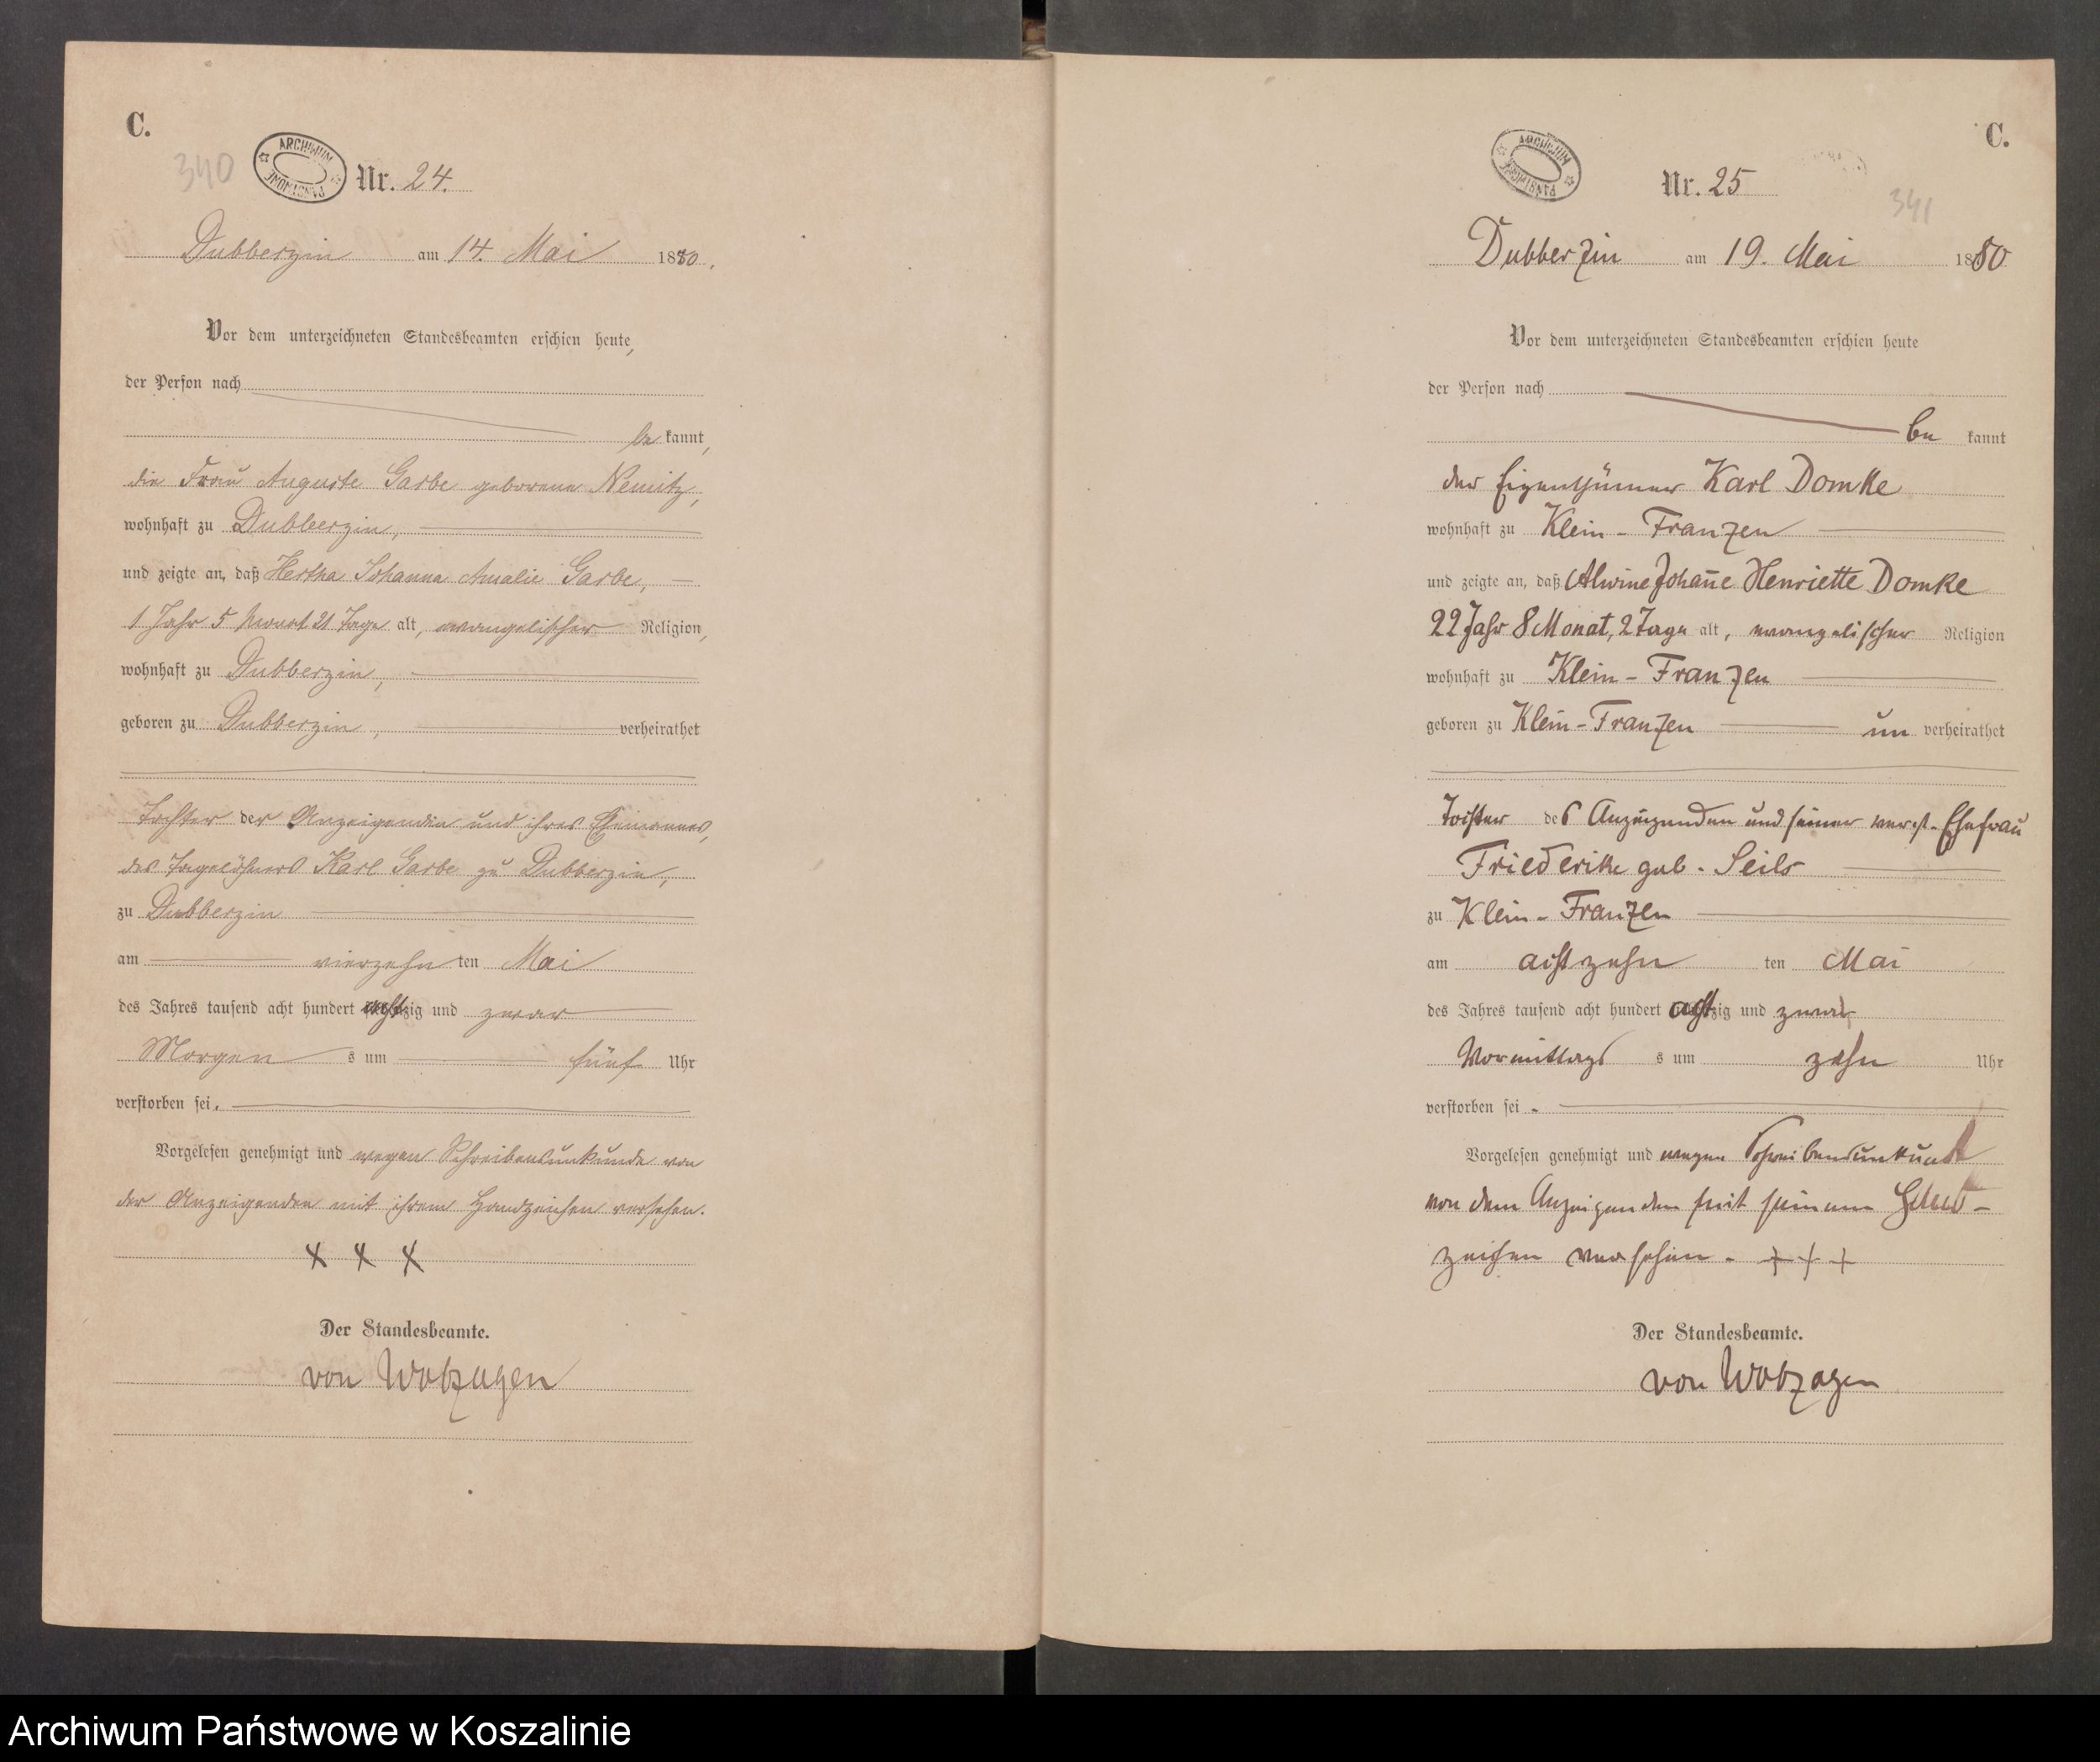 C.
340
ARCHIWUM PAŃSTWOWE
Nr. 24.
Dubberzin am 14. Mai 1880.
Vor dem unterzeichneten Standesbeamten erschien heute,
der Person nach
be kannt,
die Frau Auguste Garbe geborene Nemitz,
wohnhaft zu Dubberzin,
und zeigte an, daß Hertha Johanna Amalie Garbe,
1 Jahr 5 Monat 21 Tage alt, evangelischer Religion,
wohnhaft zu Dubberzin,
geboren zu Dubberzin, verheirathet
Tochter der Anzeigenden und ihres Ehemannes,
des Tagelöhners Karl Garbe zu Dubberzin,
zu Dubberzin
am vierzehn ten Mai
des Jahres tausend acht hundert achtzig und zwar
Morgen s um fünf Uhr
verstorben sei.
Vorgelesen genehmigt und wegen Schreibensunkunde von
der Anzeigenden mit ihrem Handzeichen versehen.
X X X
Der Standesbeamte.
von Wobzagen
C.
ARCHIWUM PAŃSTWOWE
Nr. 25
341
Dubberzin am 19. Mai 1880
Vor dem unterzeichneten Standesbeamten erschien heute
der Person nach
be kannt
der Eigenthümer Karl Domke
wohnhaft zu Klein-Franzen
und zeigte an, daß Alwine Johan̄e Henriette Domke
22 Jahr 8 Monat, 2 Tage alt, evangelischer Religion
wohnhaft zu Klein-Franzen
geboren zu Klein-Franzen un verheirathet
Tochter des Anzeigenden und seiner verst. Ehefrau
Friederike geb. Seils
zu Klein-Franzen
am achtzehn ten Mai
des Jahres tausend acht hundert achtzig und zwar
Vormittags s um zehn Uhr
verstorben sei.
Vorgelesen genehmigt und wegen Schreibensunkunde
von dem Anzeigenden mit seinem Hand-
zeichen versehen. + + +
Der Standesbeamte.
von Wobzagen
Archiwum Państwowe w Koszalinie